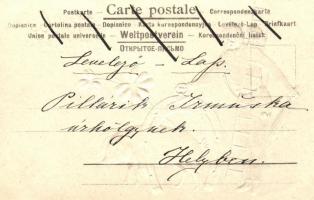 Postkarte — Carte postale — Correspondenzkarte
Dopisnice Cartolina postale Dopisnica Karta korespondencyjna Levelező-Lap Brefkaart
Union postale universelle — Weltpostverein — Korespondenční lístek
ОТКРЫТОЕ ПИСЬМО
Levelező – Lap.
Pillarik Irmuska
úrhölgynek.
Helyben.